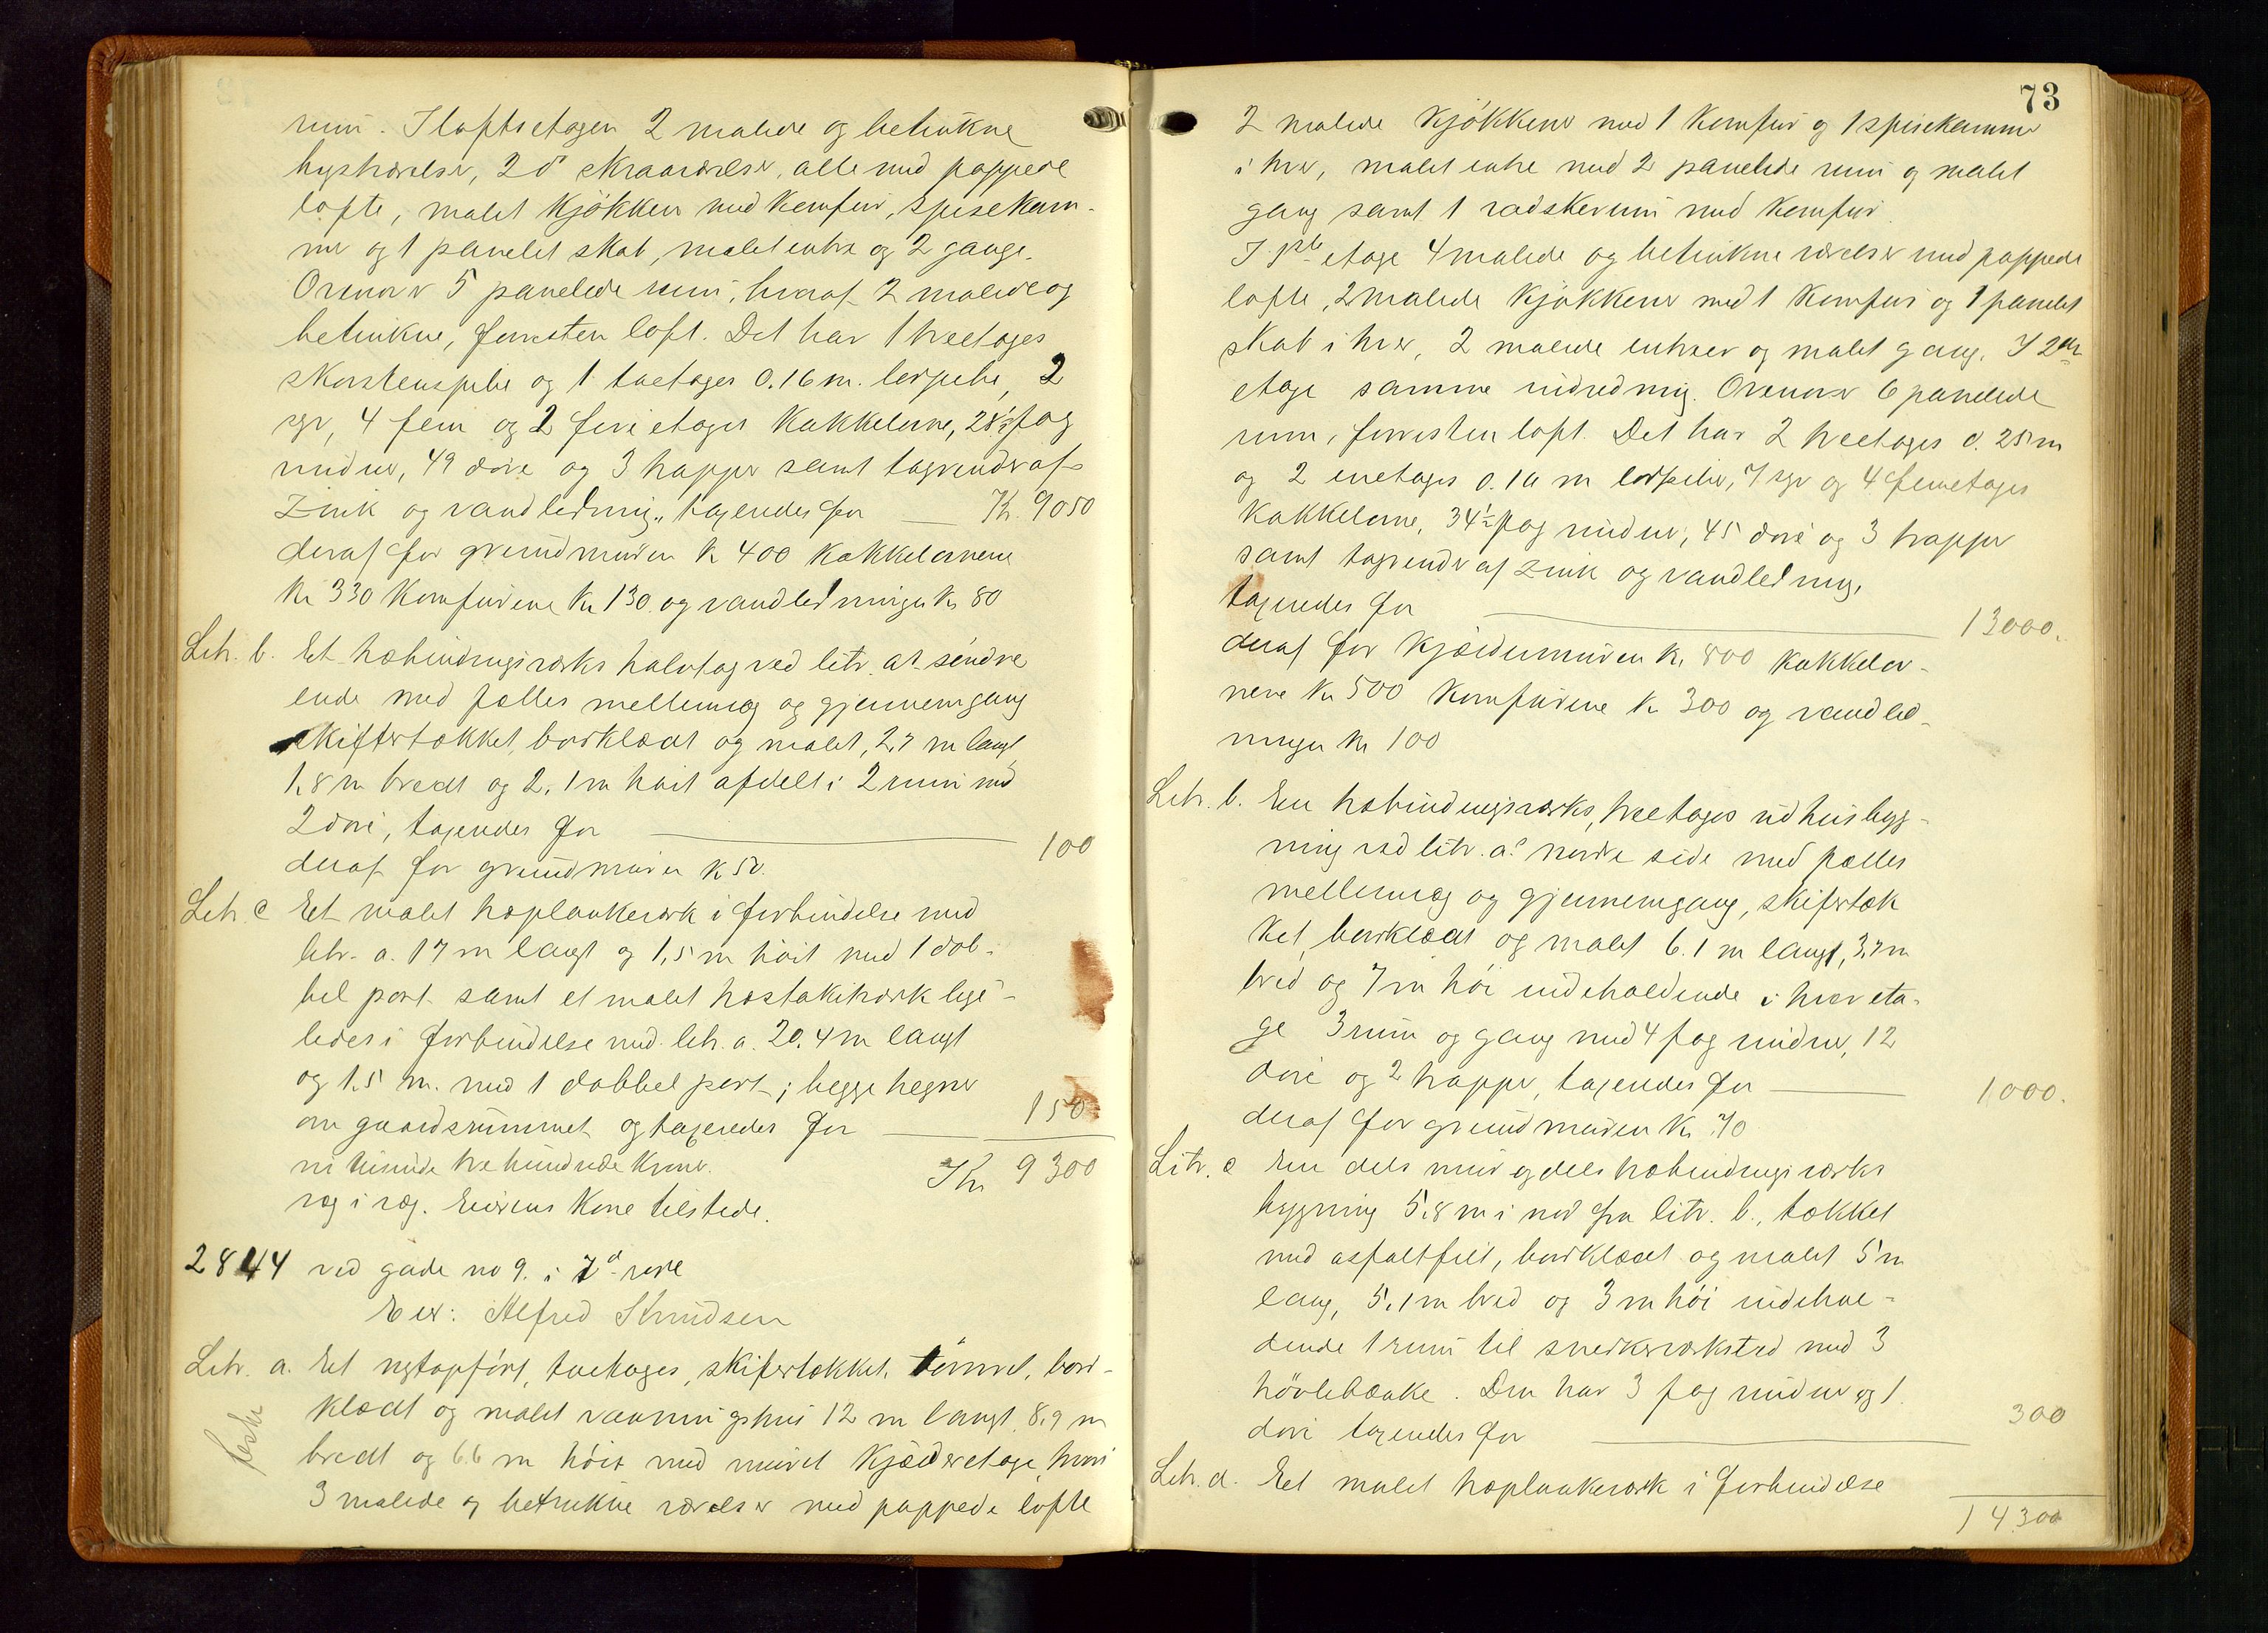 rum. I loftsetagen 2 malede og betrukne
kystværelser, 2 d° skraaværelser, alle med pappede
lofte, malet kjökken med komfur, spisekam-
mer og 1 panelet skab, malet entre og 2 gange.
Ovenover 5 panelede rum, hvoraf 2 malede og
betrukne, forresten loft. Det har 1 treetages
skorstenspibe og 1 toetages 0.16 m. lerpibe, 2
syv, 4 fem og 2 fireetages kakkelovne, 28½ fag
vinduer, 49 döre og 3 trapper samt tagrender af
Zink og vandledning, taxeredes for Kr. 9050
deraf for grundmuren kr 400 kakkelovnene
Kr 330 Komfurene Kr 130 og vandledningen Kr 80
Litr. b. Et træbindingsværks halvtag ved litr. a's söndre
ende med fælles mellemvæg og gjennemgang
skiffertækket, bordklædt og malet, 2,7 m langt
1,8 m bredt og 2,1 m höit afdelt i 2 rum med
2 döre, taxeredes for 100
deraf for grundmuren kr 50.
Litr. c Et malet træplankeværk i forbindelse med
litr. a. 17 m langt og 1,5 m höit med 1 dob-
bel port samt et malet træstakitværk lige-
ledes i forbindelse med litr. a. 20.4 m langt
og 1.5 m. med 1 dobbel port; begge hegner
om gaardsrummet og taxeredes for 150
ni tusinde tre hundrede kroner. Kr 9300
væg i væg. Eierens kone tilstede.
2844 ved gade no 9. i 7d rode
Eier: Alfred Knudsen
Litr. a. Et nytopfört, toetages, skifertækket, tömret, bord-
klædt og malet vaaningshus 12 m langt 8,9 m
bredt og 6.6 m höit med muret kjælderetage, hvori
3 malede og betrukne værelser med pappede lofte
73
2 malede kjökkener med 1 Komfur og 1 spisekammer
i hver, malet entre med 2 panelede rum og malet
gang samt 1 vadskerum med komfur.
I 1ste etage 4 malede og betrukne værelser med pappede
lofte, 2 malede kjökkener med 1 komfur og 1 panelet
skab i hver, 2 malede entreer og malet gang. I 2den
etage samme indredning. Ovenover 6 panelede
rum, forresten loft. Det har 2 treetages 0.25 m
og 2 enetages 0.10 m lerpiber, 7 syv og 4 femetages
kakkelovne, 34½ fag vinduer, 45 döre og 3 trapper
samt tagrender af zink og vandledning,
taxeredes for 13000.
deraf for kjældermuren kr. 800 kakkelov-
nene kr 500 komfurene kr 300 og vandled-
ningen kr 100
Litr. b. En træbindingsværks, treetages udhusbyg-
ning ved litr. a's nordre side med fælles
mellemvæg og gjennemgang, skifertæk
ket, bordklædt og malet 6.1 m lang, 3,7 m
bred og 7 m höi indeholdende i hver eta-
ge 3 rum og gang med 4 fag vinduer, 12
döre og 2 trapper, taxeredes for 1000.
deraf for grundmuren Kr. 70
Litr. c En dels mur og dels træbindingsværks
bygning 5,8 m i nord fra litr. b., tækket
med asfaltfilt, bordklædt og malet 5 m
lang, 5,1 m bred og 3 m höi indehol-
dende 1 rum til snedkerværksted med 3
hövlebænke. Den har 3 fag vinduer og 1
dör taxeredes for 300
Litr. d. Et malet træplankeværk i forbindelse
14300